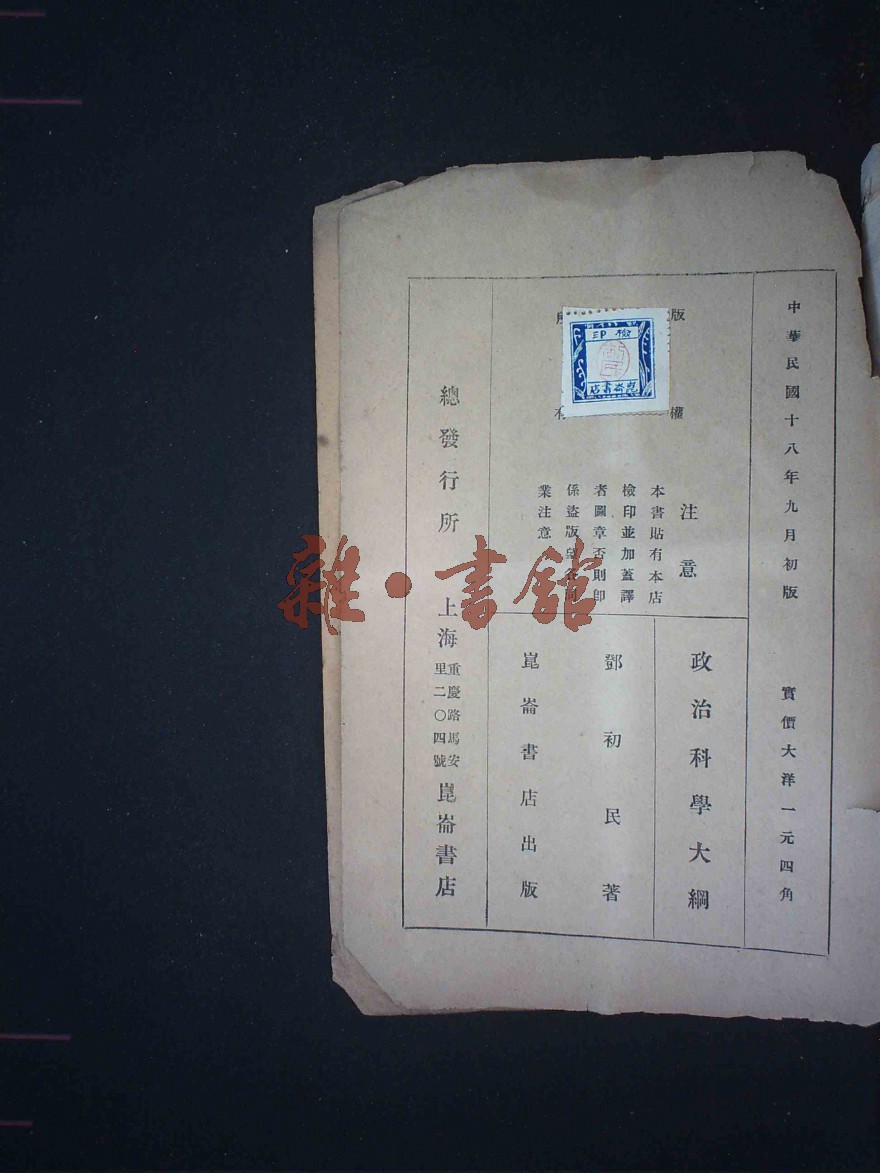 中華民國十八年九月初版
實價大洋一元四角
版
權
檢印
崑崙書店
注意
本書貼有本店
檢印並加蓋譯
者圖章否則即
係盜版望各同
業注意
政治科學大綱
鄧初民著
崑崙書店出版
總發行所
上海
重慶路馬安
里二〇四號
崑崙書店
雜·書館